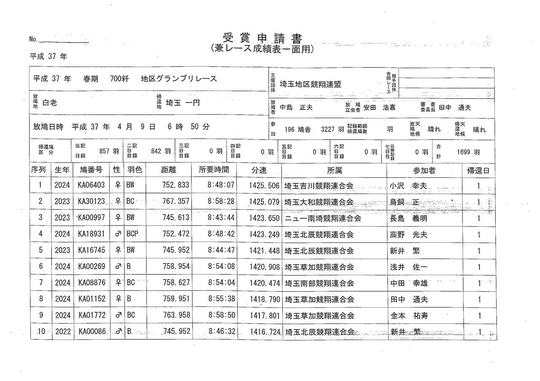 受賞申請書
(兼レース成績表一面用)
No.
平成 37 年
平成 37 年 春期 700粁 地区グランプリレース 主催団体 埼玉地区競翔連盟
放鳩地 白老 帰還地 埼玉 一円 放鳩者 中島 正夫 放鳩立会者 安田 浩嘉 審査委員長 田中 通夫
放鳩日時 平成 37 年 4 月 9 日 6 時 50 分 参加 196 鳩舎 3227 羽 羽 放鳩地天候 晴れ 帰還地天候 晴れ
帰還鳩区分 当日記録 857 羽 二日目記録 842 羽 三日目記録 0 羽 四日目記録 0 羽 五日目記録 0 羽 六日目記録 0 羽 0 羽 合計 1699 羽
序列 生年 鳩番号 性 羽色 距離 所要時間 分速 所属 参加者 帰還日
1 2024 KA06403 ♀ BW 752.833 8:48:07 1425.506 埼玉吉川競翔連合会 小沢 幸夫 1
2 2023 KA30123 ♀ BC 767.357 8:58:28 1425.079 埼玉大和競翔連合会 鳥飼 正 1
3 2023 KA00997 ♀ BW 745.613 8:43:44 1423.650 ニュー南埼競翔連合会 長島 義明 1
4 2024 KA18931 ♂ BCP 752.472 8:48:42 1423.249 埼玉北辰競翔連合会 高野 光夫 1
5 2023 KA16745 ♀ BW 745.952 8:44:47 1421.448 埼玉北辰競翔連合会 新井 繁 1
6 2023 KA00269 ♂ B 758.954 8:54:08 1420.908 埼玉草加競翔連合会 浅井 佐一 1
7 2024 KA08876 ♀ BC 758.627 8:54:04 1420.474 埼玉南部競翔連合会 中田 幸雄 1
8 2024 KA01152 ♀ B 759.951 8:55:38 1418.790 埼玉草加競翔連合会 田中 通夫 1
9 2024 KA01772 ♂ BC 763.958 8:58:50 1417.801 埼玉草加競翔連合会 金本 祐寿 1
10 2022 KA00086 ♂ B 745.952 8:46:32 1416.724 埼玉北辰競翔連合会 新井 繁 1